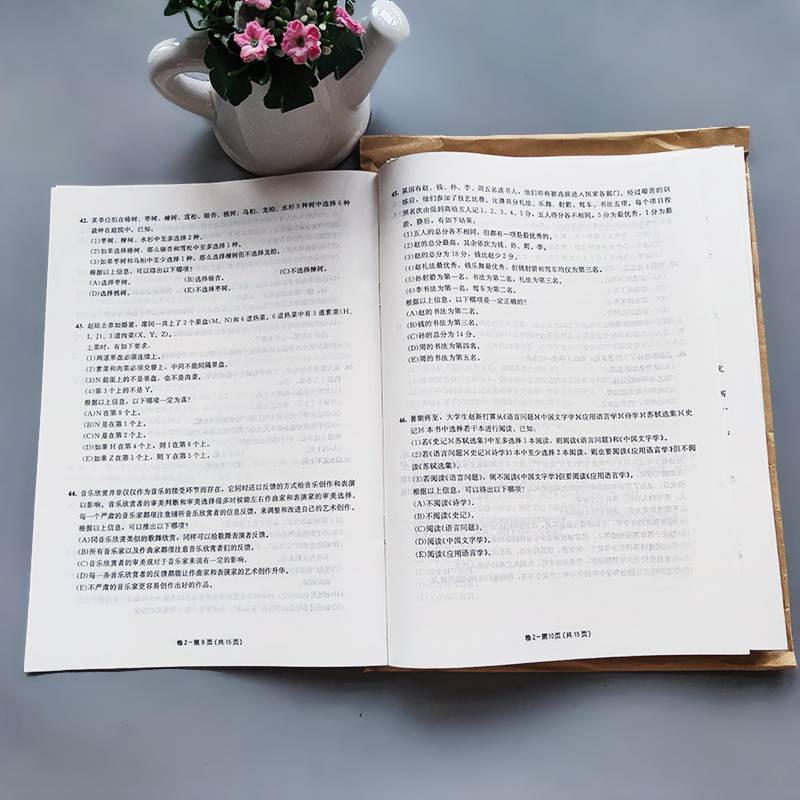 42. 某单位拟在椿树、枣树、楝树、雪松、银杏、桃树、乌桕、龙柏、水杉9种树中选择6种
栽种在庭院中。已知:
(1)枣树、楝树、水杉中至多选择2种。
(2)如果选择椿树,那么银杏和雪松中至多选择1种。
(3)如果枣树和乌桕中至少选择1种,那么选择楝树但不选择龙柏。
根据以上信息,可以得出以下哪项?
(A)选择枣树。 (B)选择银杏。 (C)不选择楝树。
(D)选择桃树。 (E)不选择枣树。
43. 赵陆去参加婚宴,席间一共上了2个果盘(M、N)和6道热菜,6道热菜中有3道素菜(H、
I、J)、3道肉菜(X、Y、Z)。
上菜时,有如下要求:
(1)两道果盘必须连续上。
(2)素菜和肉菜必须交替上,中间不能间隔果盘。
(3)N前面上的不是果盘,也不是肉菜。
(4)第3个上的不是Y。
根据以上信息,以下哪项一定为真?
(A)N在第8个上。
(B)N是在第1个上。
(C)N是在第2个上。
(D)如果H在第4个上,则I在第6个上。
(E)如果Z在第1个上,则Y在第5个上。
44. 音乐欣赏并非仅仅作为音乐的接受环节而存在,它同时还以反馈的方式给音乐创作和表演
以影响。音乐欣赏者的审美判断和审美选择很多时候能左右作曲家和表演家的审美选择。
每一个严肃的音乐家都很注意倾听音乐欣赏者的信息反馈,来调整和改进自己的艺术创作。
根据以上信息,可以推出以下哪项?
(A)同音乐欣赏类似的歌舞欣赏,同样可以给歌舞表演者反馈。
(B)所有音乐家以及作曲家都很注意音乐欣赏者们的反馈。
(C)音乐欣赏者的审美观对于音乐家来说有一定的影响。
(D)每一条音乐欣赏者的反馈都能让作曲家和表演家的艺术创作升华。
(E)不严肃的音乐家更容易创作出好的作品。
卷2-第9页(共15页)
45. 某国有赵、钱、孙、李、周五名读书人,他们即将被选拔进入国家各部门。经过艰苦的训
练后,他们参加了技艺比赛。比赛共分礼法、乐舞、射箭、驾车、书法五项,每个项目按
照名次由低到高给五人记1、2、3、4、5分,五人得分各不相同,5分为最优秀,1分为最
差。赛后,有如下结果:
(1)五人的总分各不相同,但都有一项是最优秀的。
(2)赵的总分最高,其余依次为钱、孙、周、李。
(3)赵的总分为18分,钱比赵少2分。
(4)赵礼法最优秀,钱乐舞最优秀,但钱射箭和驾车均仅为第三名。
(5)孙射箭为第一名,书法为第二名,礼法为第三名。
(6)李书法为第一名,驾车为第二名。
根据以上信息,以下哪项是一定正确的?
(A)赵的书法为第二名。
(B)钱的书法为第三名。
(C)孙的总分为14分。
(D)周的书法为第四名。
(E)周的书法为第五名。
46. 暑期将至,大学生赵新打算从《语言问题》《中国文字学》《应用语言学》《诗学》《苏轼选集》《史
记》6本书中选择若干本进行阅读。已知:
(1)若《史记》《苏轼选集》中至多选择1本阅读,则阅读《语言问题》和《中国文字学》。
(2)若《语言问题》《史记》《诗学》3本中至少选择2本阅读,则也要阅读《应用语言学》但不阅
读《苏轼选集》。
(3)若阅读《语言问题》,则不阅读《中国文字学》但要阅读《应用语言学》。
根据以上信息,可以得出以下哪项?
(A)不阅读《诗学》。
(B)不阅读《史记》。
(C)阅读《语言问题》。
(D)阅读《中国文字学》。
(E)阅读《应用语言学》。
卷2-第10页(共15页)